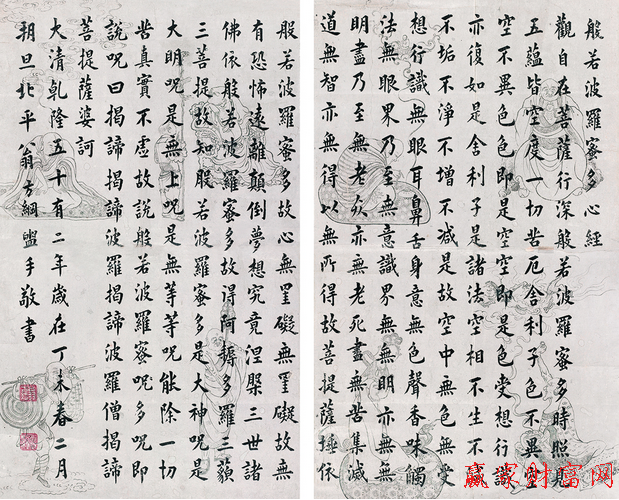 般若波羅蜜多心經
觀自在菩薩行深般若波羅蜜多時照見
五蘊皆空度一切苦厄舍利子色不異空
空不異色色即是空空即是色受想行識
亦復如是舍利子是諸法空相不生不滅
不垢不淨不增不減是故空中無色無受
想行識無眼耳鼻舌身意無色聲香味觸
法無眼界乃至無意識界無無明亦無無
明盡乃至無老死亦無老死盡無苦集滅
道無智亦無得以無所得故菩提薩埵依
般若波羅蜜多故心無罣礙無罣礙故無
有恐怖遠離顛倒夢想究竟涅槃三世諸
佛依般若波羅蜜多故得阿耨多羅三藐
三菩提故知般若波羅蜜多是大神呪是
大明呪是無上呪是無等等呪能除一切
苦真實不虛故說般若波羅蜜呪多呪即
說呪曰揭諦揭諦波羅揭諦波羅僧揭諦
菩提薩婆訶
大清乾隆五十有二年歲在丁未春二月
朔旦北平翁方綱盥手敬書
赢家财富网